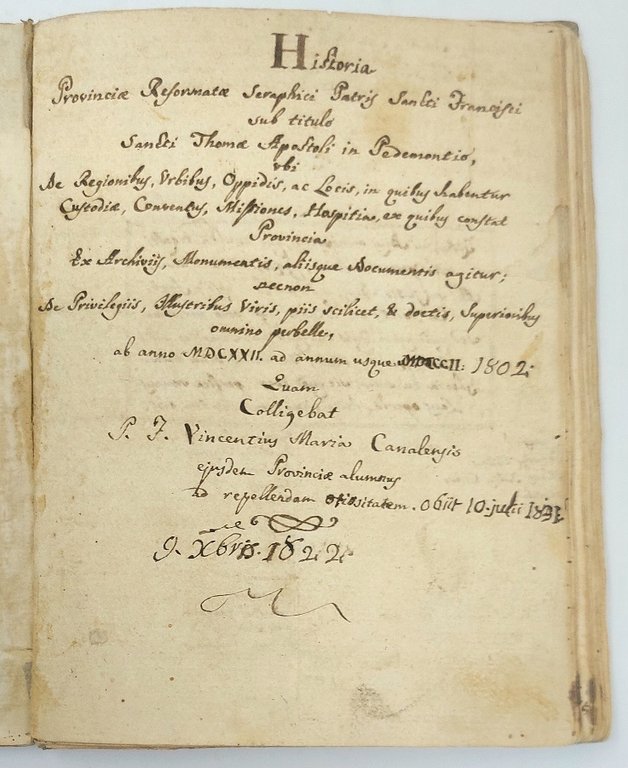 Historia
Provinciæ Reformatæ Seraphici Patris Sancti Francisci
sub titulo
Sancti Thomæ Apostoli in Pedemontio,
vbi
De Regionibus, Vrbibus, Oppidis, ac Locis, in quibus habentur
Custodiæ, Conventus, Missiones, Hospitia, ex quibus constat
Provincia
Ex Archiviis, Monumentis, aliisque Documentis agitur;
necnon
De Privilegiis, Illustribus Viris, piis scilicet, & doctis, Superioribus
omnino perbelle,
ab anno MDCXXII. ad annum usque 1802;
Quam
Colligebat
P. F. Vincentius Maria Canalensis
ejusdem Provinciæ alumnus
ad repellendam otiositatem. obiit 10. julii
9. Xbris. 1822;